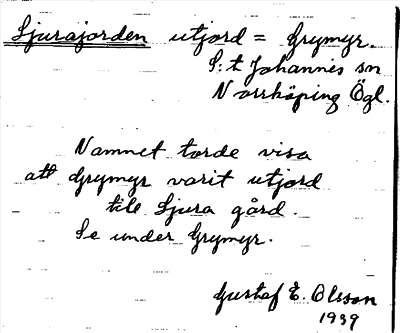 Ljurajorden utjord = Grymyr.
S:t Johannis sn
Norrköping Ögl.
Namnet torde visa
att Grymyr varit utjord
till Ljura gård.
Se under Grymyr.
Gustaf E. Olsson
1939